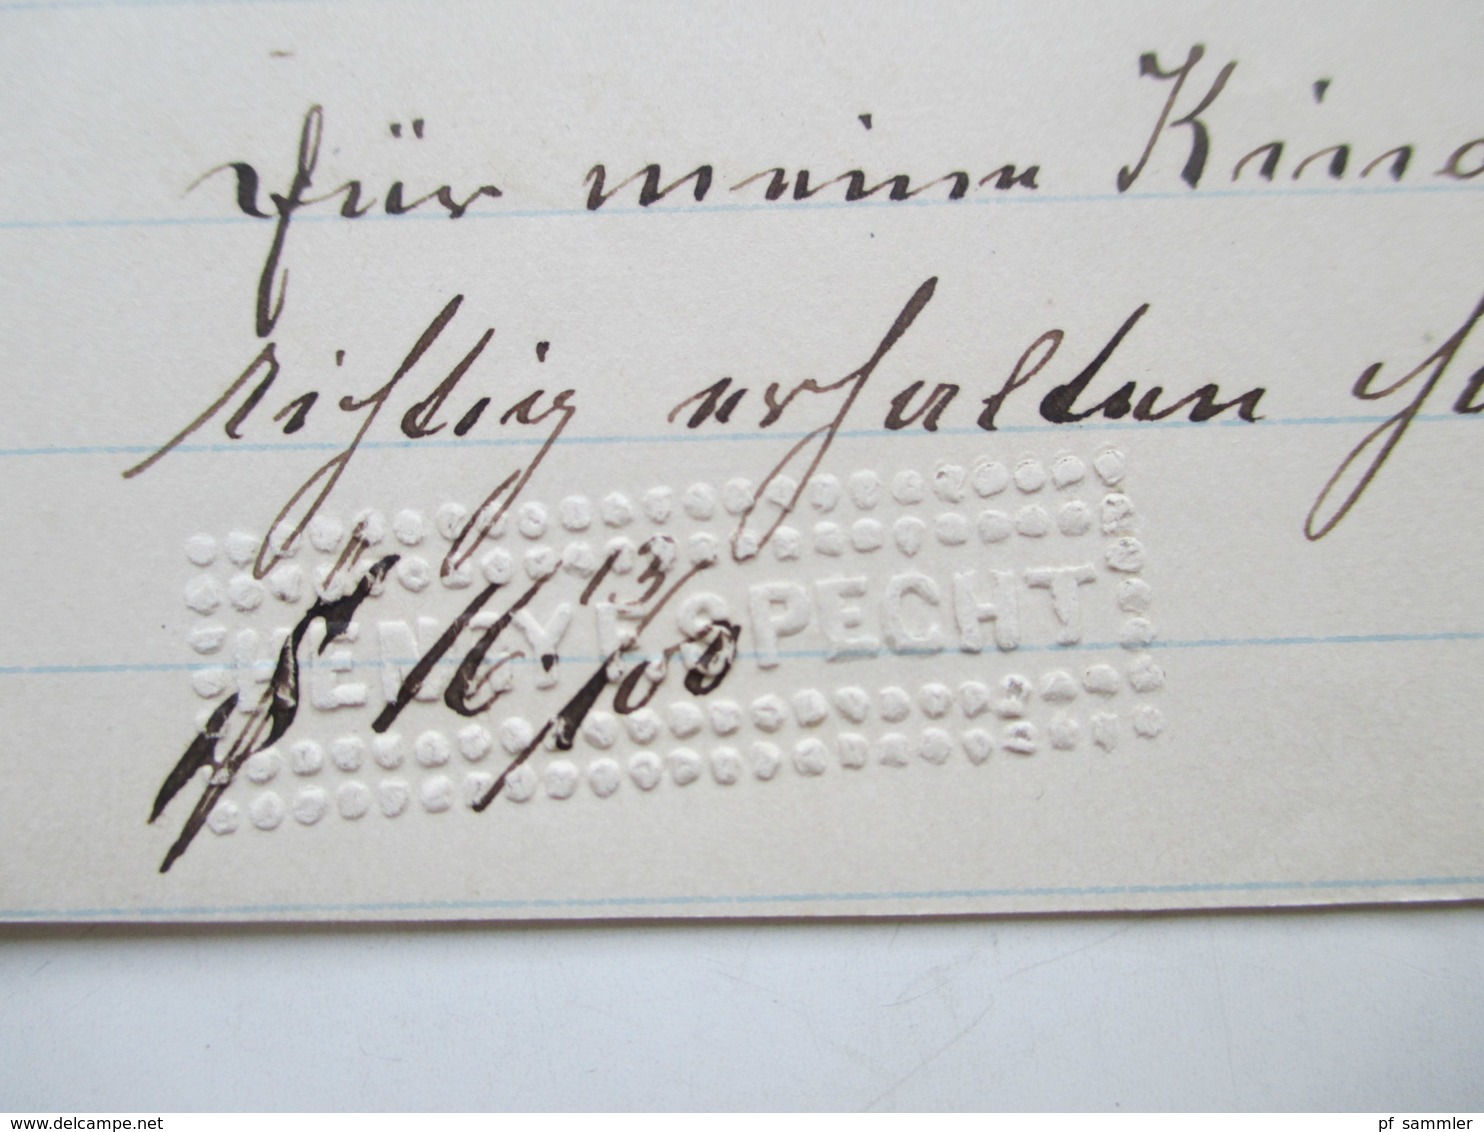 für meine Kind
richtig erhalten
$ 16. 13/100
HENRY F. SPECHT
delcampe.net
pf_sammler